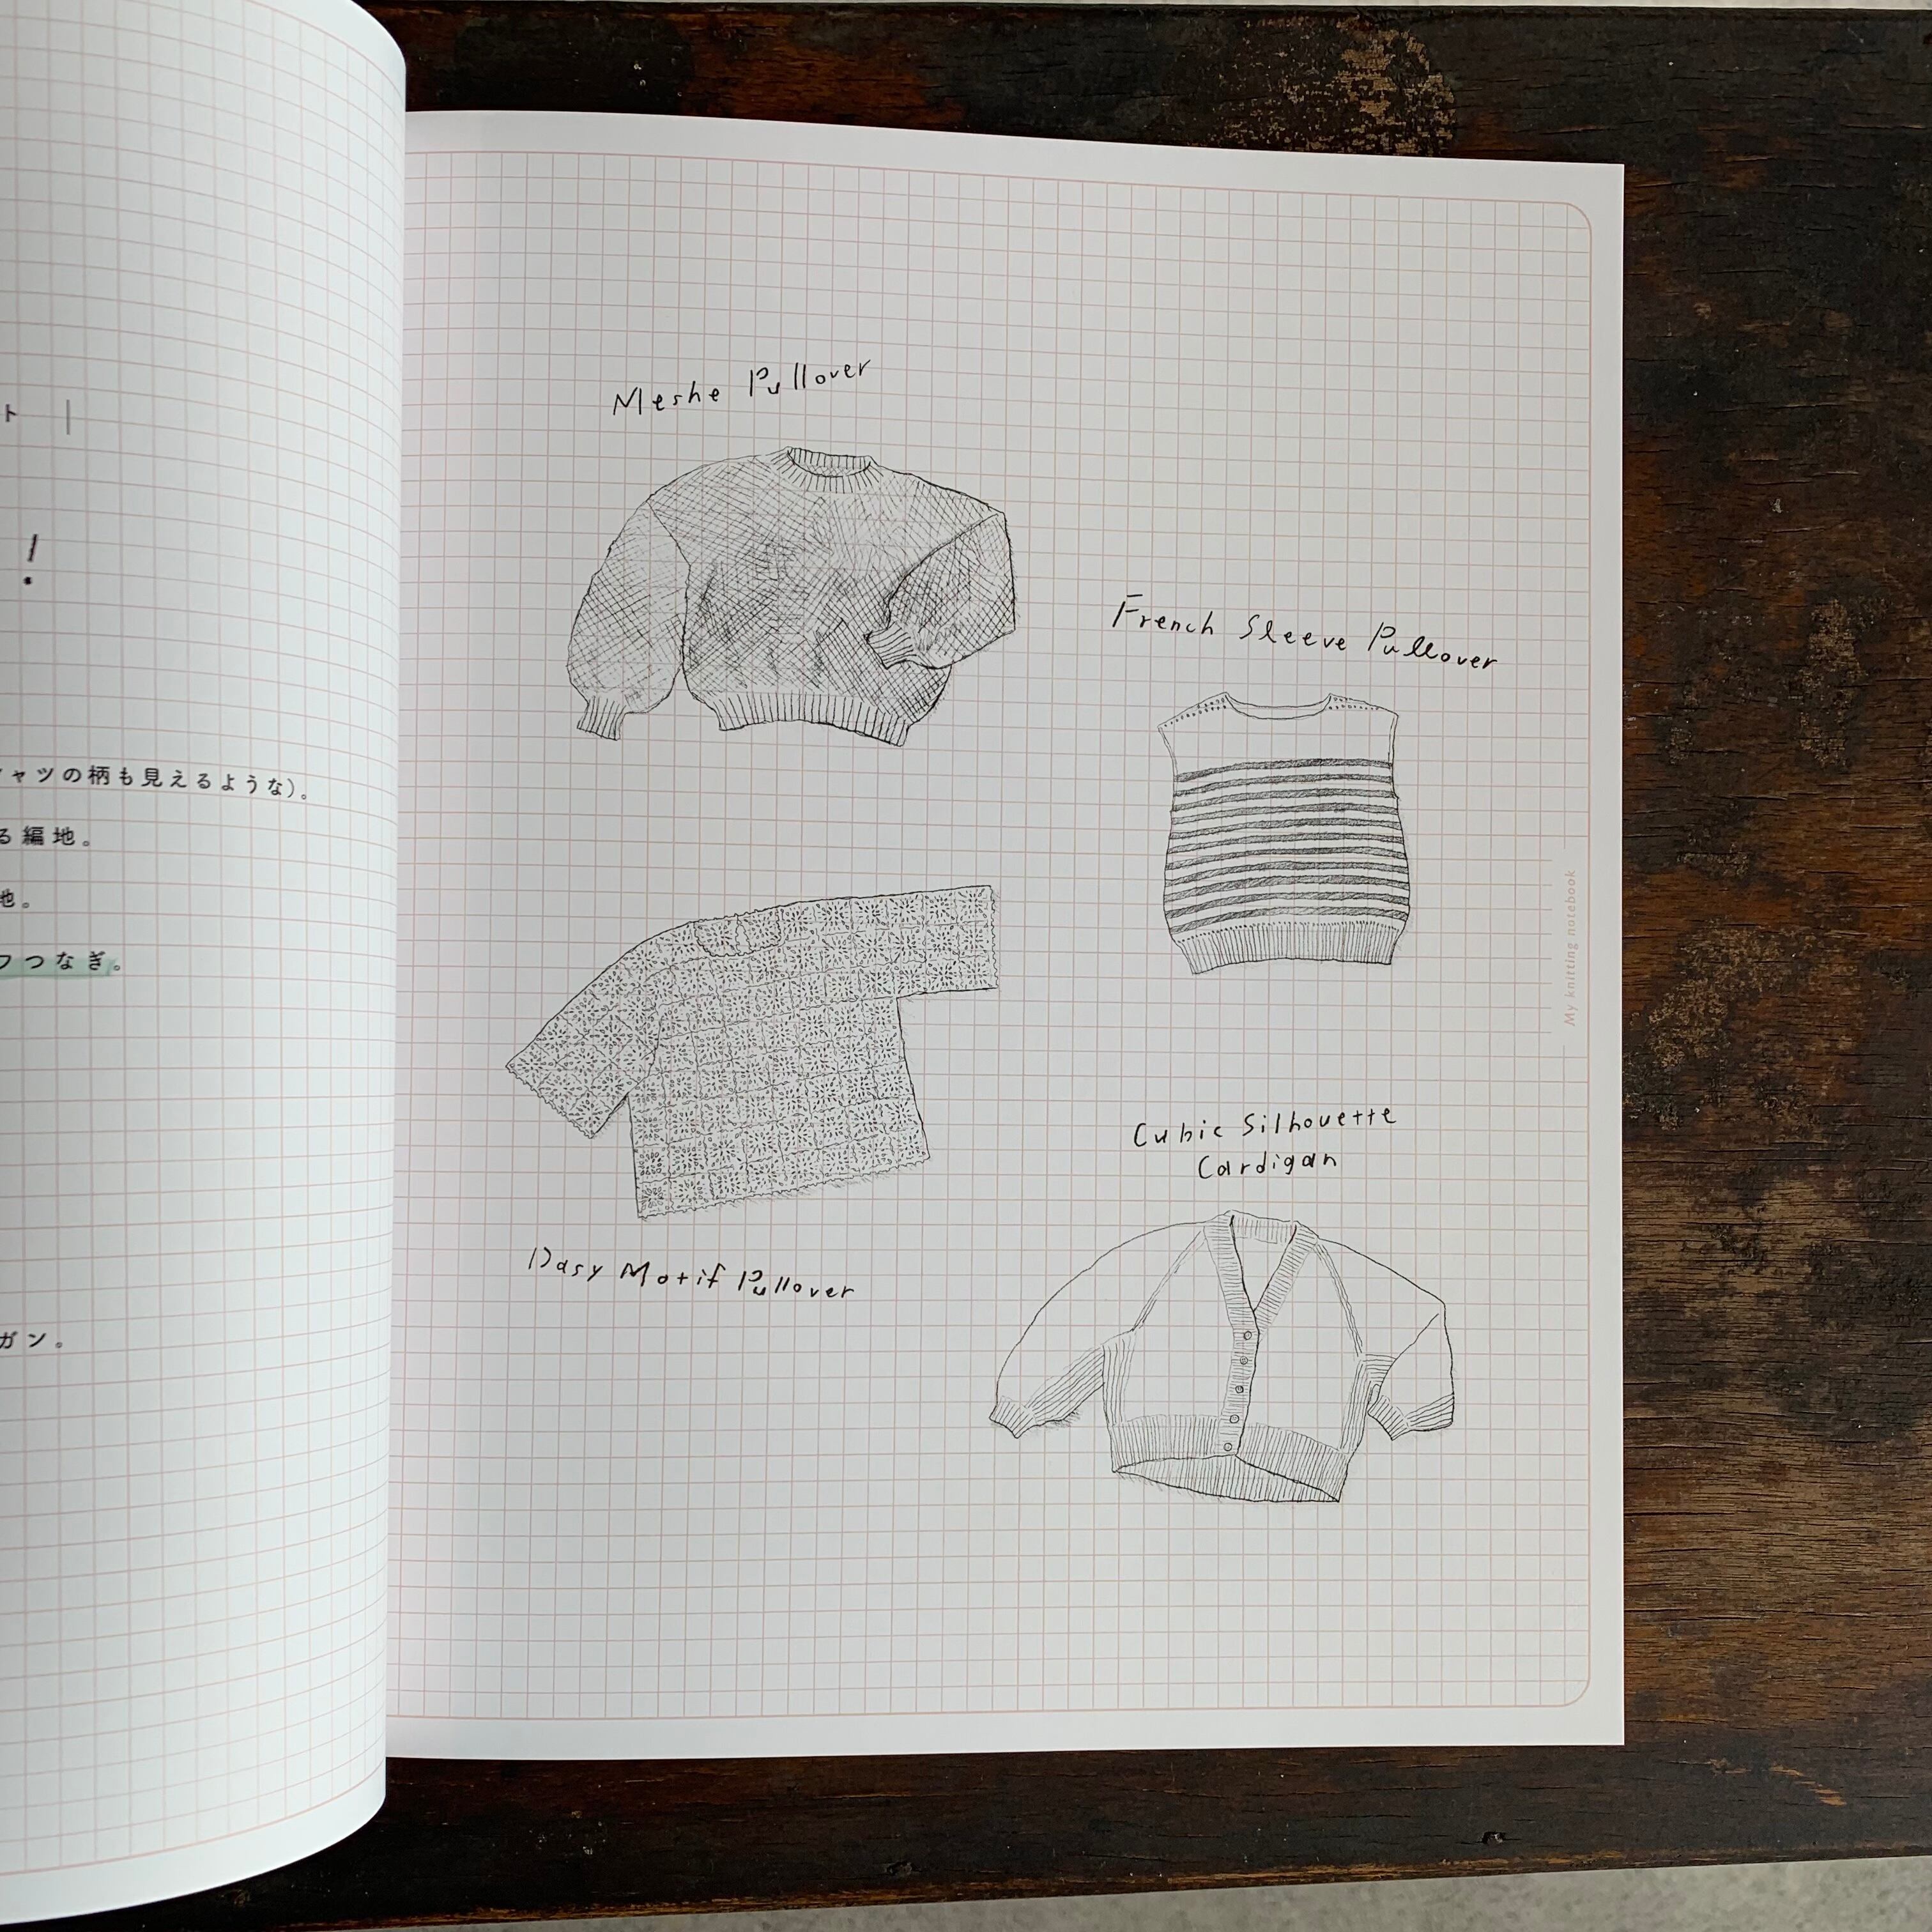 ト |
!
ャツの柄も見えるような)。
る編地。
地。
つなぎ。
ガン。
Meshe Pullover
French Sleeve Pullover
Dasy Motif Pullover
Cubic Silhouette
Cardigan
My knitting notebook